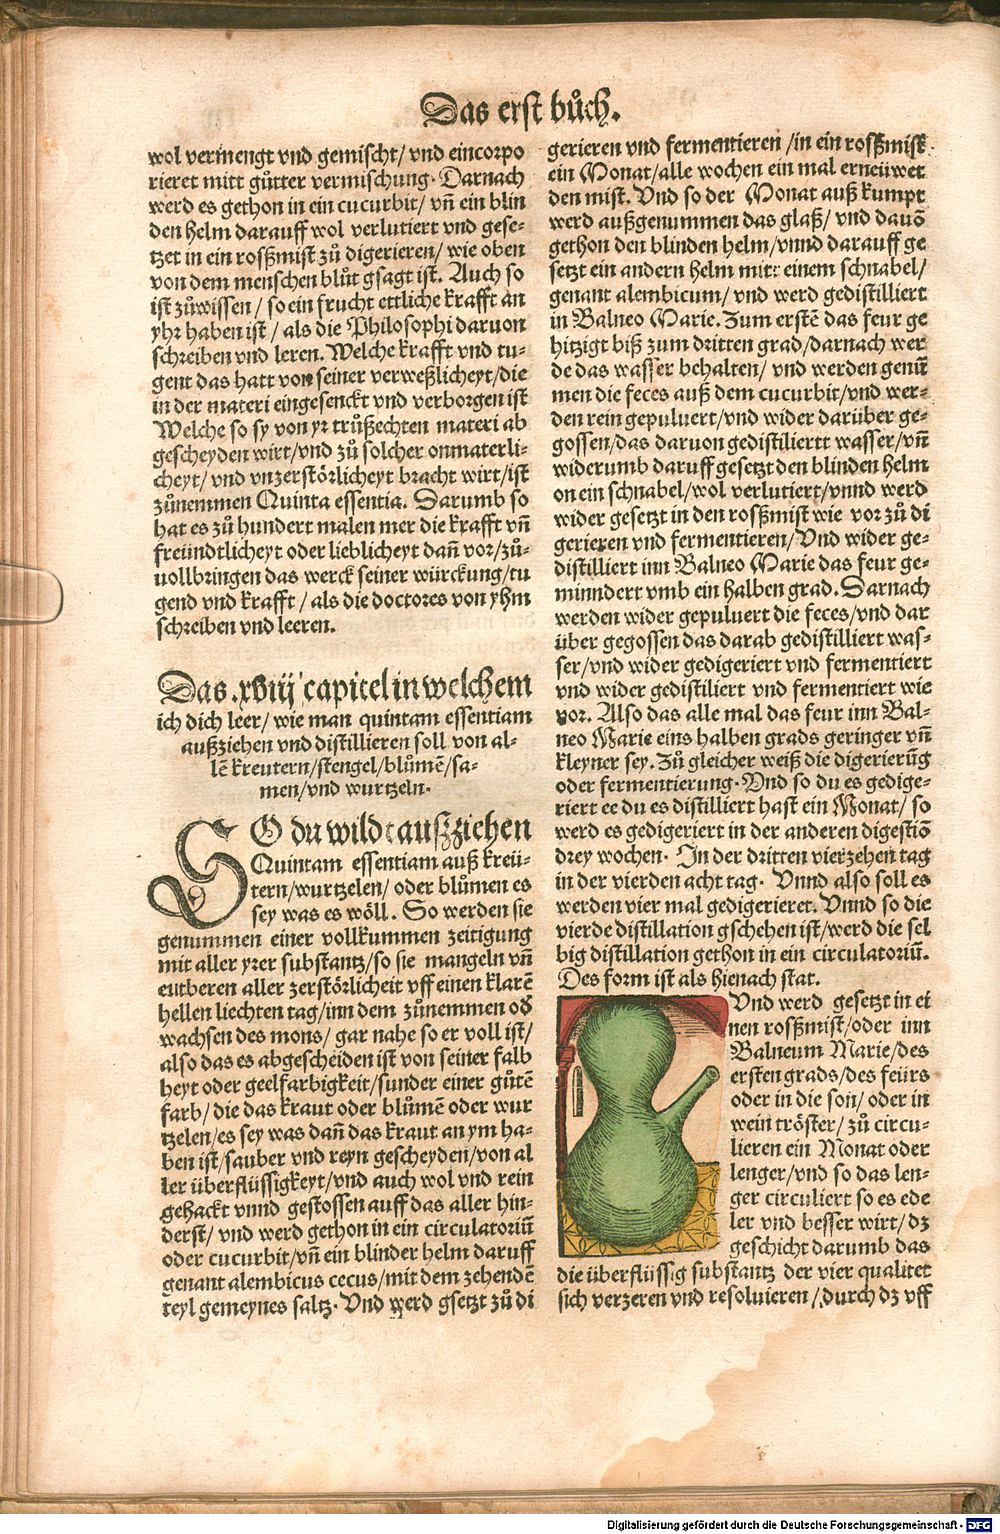 Das erst bůch.
wol vermengt vnd gemischt/ vnd eincorpo
rieret mitt gůtter vermischung. Darnach
werd es gethon in ein cucurbit/ vñ ein blin
den helm darauff wol verlutiert vnd gese-
tzet in ein roszmist zů digerieren/ wie oben
von dem menschen blůt gsagt ist. Auch so
ist zůwissen/ so ein frucht ettliche krafft an
yhr haben ist/ als die Philosophi daruon
schreiben vnd leren. Welche krafft vnd tu-
gent das hatt von seiner verweßlicheyt/die
in der materi eingesenckt vnd verborgen ist
Welche so sy von yr trůßechten materi ab
gescheyden wirt/vnd zů solcher onmaterli-
cheyt/ vnd vnzerstörlicheyt bracht wirt/ist
zůnemmen Quinta essentia. Darumb so
hat es zů hundert malen mer die krafft vñ
freündtlicheyt oder lieblicheyt dañ vor/zů-
vollbringen das werck seiner würckung/tu
gend vnd krafft/ als die doctores von yhm
schreiben vnd leeren.
Das .xviij capitel in welchem
ich dich leer/ wie man quintam essentiam
außziehen vnd distillieren soll von al-
lẽ kreutern/stengel/blůmẽ/sa-
men/vnd wurtzeln.
SO du wild außziehen
Quintam essentiam auß kreü-
tern/wurtzelen/ oder blůmen es
sey was es wöll. So werden sie
genummen einer vollkummen zeitigung
mit aller yrer substantz/so sie mangeln vñ
entberen aller zerstörlicheit vff einen klarẽ
hellen liechten tag/inn dem zůnemmen oď
wachsen des mons/ gar nahe so er voll ist/
also das es abgescheiden ist von seiner falb
heyt oder geelfarbigkeit/sunder einer gůtẽ
farb/ die das kraut oder blůmẽ oder wur
tzelen/es sey was dañ das kraut an ym ha-
ben ist/sauber vnd reyn gescheyden/von al
ler überflüssigkeyt/vnd auch wol vnd rein
gehackt vnnd gestossen auff das aller hin-
derst/ vnd werd gethon in ein circulatoriũ
oder cucurbit/vñ ein blinder helm daruff
genant alembicus cecus/mit dem zehendẽ
teyl gemeynes saltz. Vnd werd gsetzt zů di
gerieren vnd fermentieren /in ein roszmist
ein Monat/alle wochen ein mal erneüwet
den mist. Vnd so der Monat auß kumpt
werd außgenummen das glaß/ vnd dauõ
gethon den blinden helm/vnnd darauff ge
setzt ein andern helm mitt einem schnabel/
genant alembicum/ vnd werd gedistilliert
in Balneo Marie. Zum erstẽ das feur ge
hitzigt biß zum dritten grad/darnach wer
de das wasser behalten/ vnd werden genũ
men die feces auß dem cucurbit/vnd wer-
den rein gepuluert/vnd wider darüber ge-
gossen/das daruon gedistiliertt wasser/vñ
widerumb daruff gesetzt den blinden helm
on ein schnabel/wol verlutiert/vnnd werd
wider gesetzt in den roszmist wie vor zů di
gerieren vnd fermentieren/ Vnd wider ge-
distilliert inn Balneo Marie das feur ge-
minndert vmb ein halben grad. Darnach
werden wider gepuluert die feces/vnd dar
über gegossen das darab gedistilliert was-
ser/vnd wider gedigeriert vnd fermentiert
vnd wider gedistiliert vnd fermentiert wie
vor. Also das alle mal das feur inn Bal-
neo Marie eins halben grads geringer vñ
kleyner sey. Zů gleicher weiß die digerierũg
oder fermentierung. Vnd so du es gedige-
riert ee du es distilliert hast ein Monat/ so
werd es gedigeriert in der anderen digestiõ
drey wochen. In der dritten vierzehen tag
in der vierden acht tag. Vnnd also soll es
werden vier mal gedigerieret. Vnnd so die
vierde distillation gschehen ist/werd die sel
big distillation gethon in ein circulatoriũ.
Des form ist als hienach stat.
Vnd werd gesetzt in ei
nen roszmist/oder inn
Balneum Marie/des
ersten grads/des feürs
oder in die son/ oder in
wein tröster/ zů circu-
lieren ein Monat oder
lenger/vnd so das len-
ger circuliert so es ede
ler vnd besser wirt/ dz
geschicht darumb das
die überflüssig substantz der vier qualitet
sich verzeren vnd resoluieren/durch dz vff
Digitalisierung gefördert durch die Deutsche Forschungsgemeinschaft - DFG